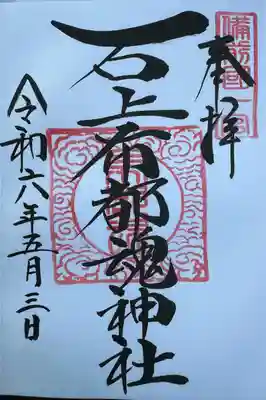 奉拝
備前國一宮
石上布都魂神社
令和六年五月三日